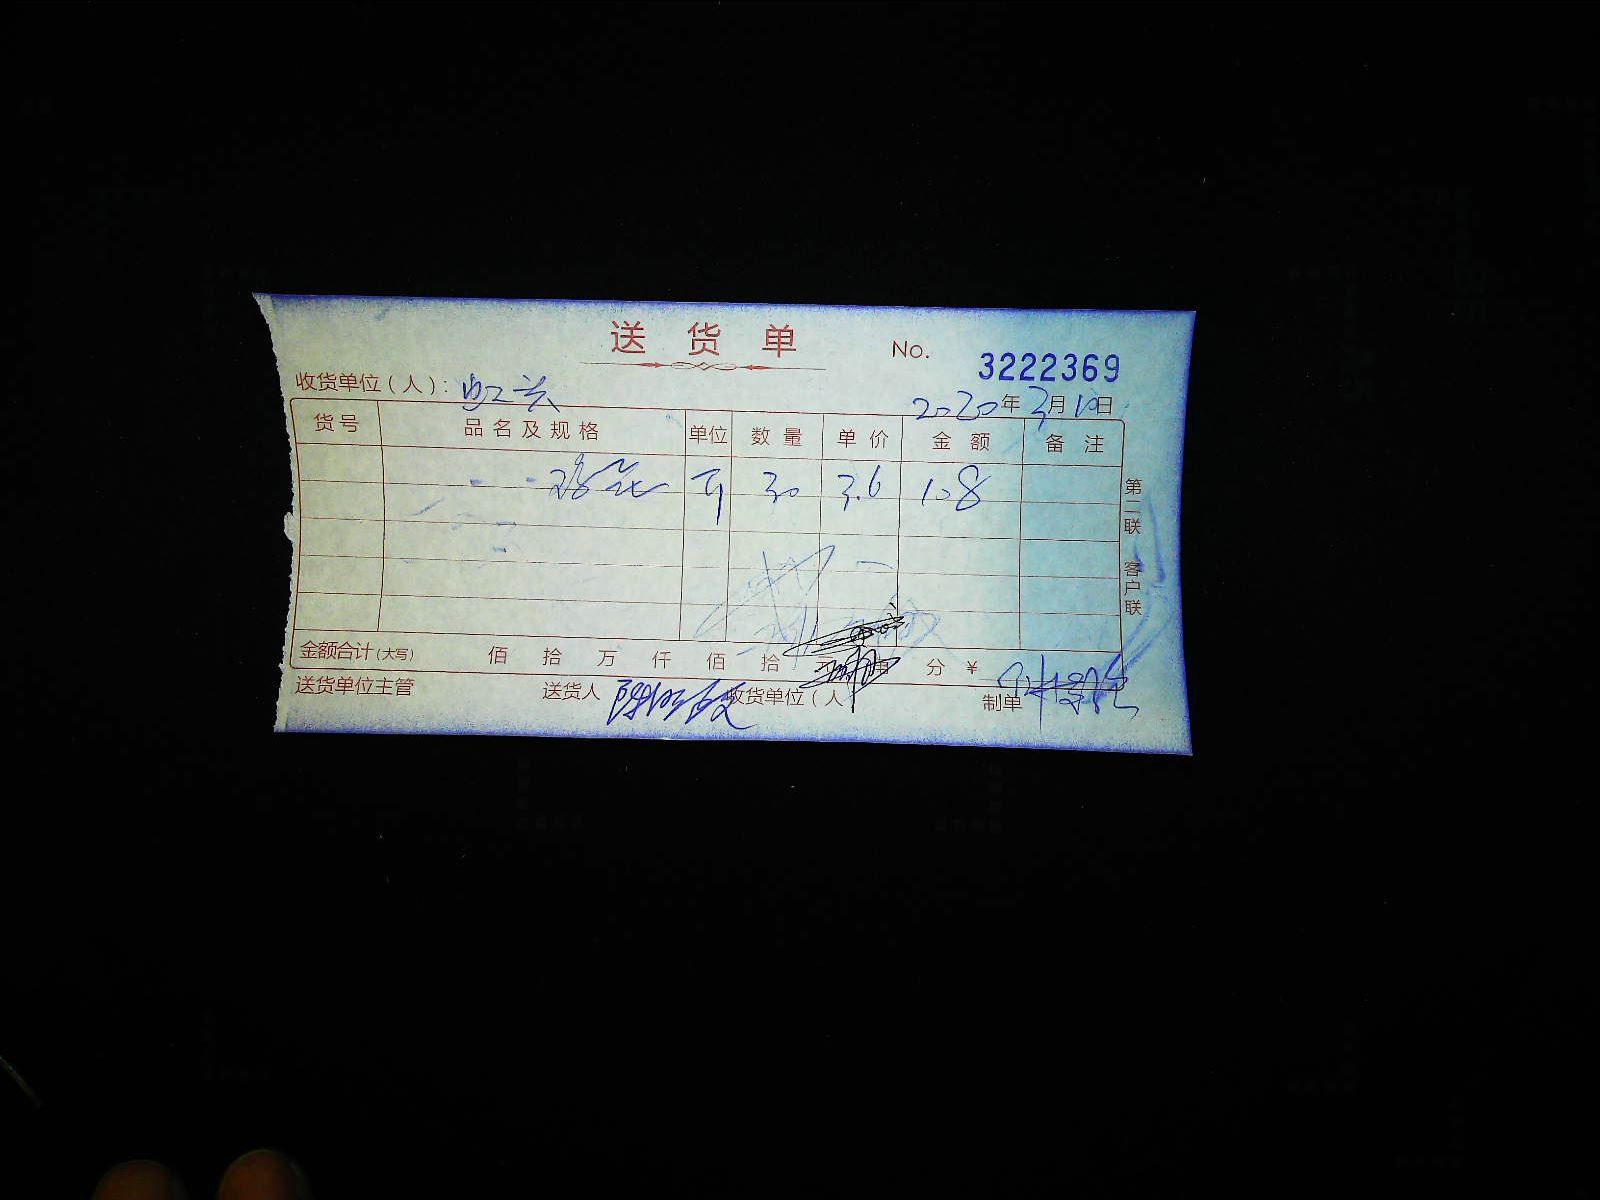 送货单
No. 3222369
收货单位（人）：虹兴
2020年3月10日
货号 品名及规格 单位 数量 单价 金额 备注
30 3.6 108
第二联 客户联
金额合计(大写) 佰 拾 万 仟 佰 拾 分 ¥
送货单位主管 送货人 收货单位（人 制单